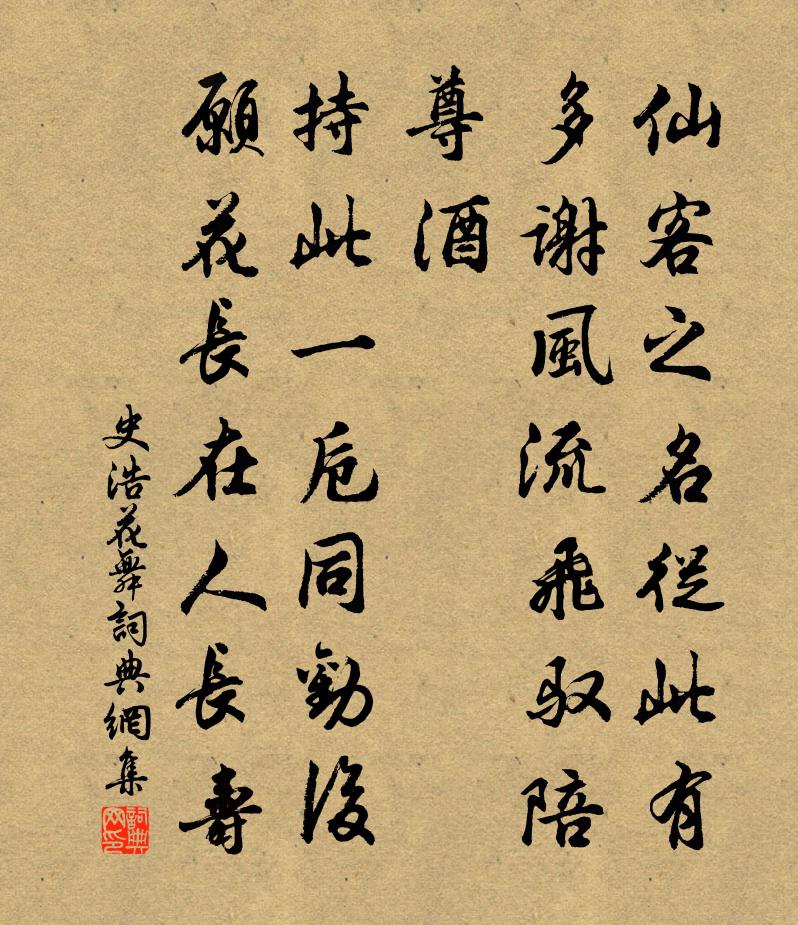 仙客之名從此有
多謝風流飛馭陪
尊酒
持此一卮同勸後
願花長在人長壽
史浩花舞詞典網集
詞典
网印